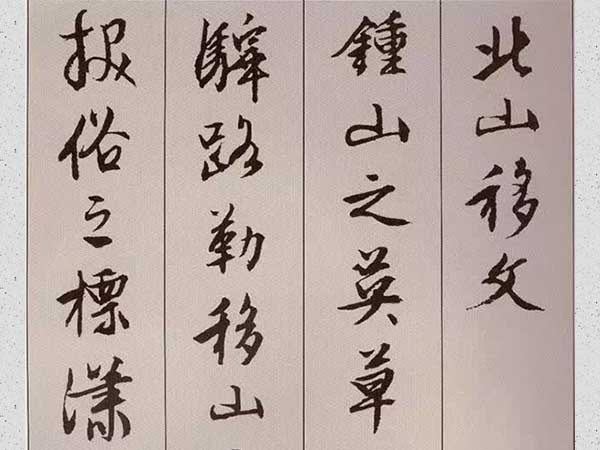 北山移文
鍾山之英草
驛路勒移山
拔俗之標瀟